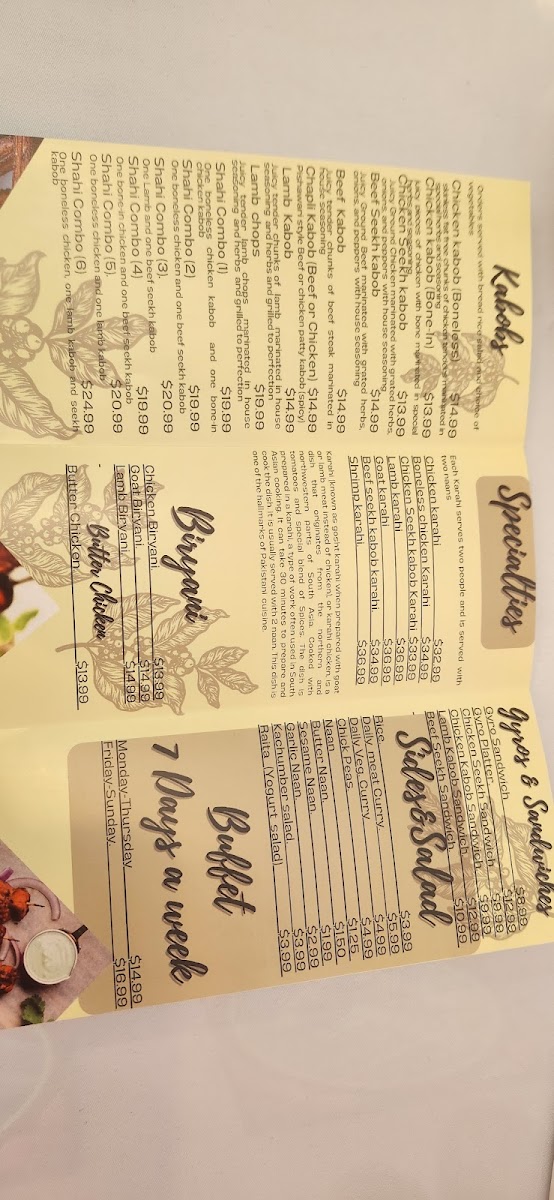 Kabobs
Orders served with bread rice salad and choice of
vegetables
Chicken kabob (Boneless) $14.99
Chicken kabob (Bone-In) $13.99
Chicken Seekh kabob $13.99
Juicy ground chicken marinated with grated herbs,
onions and peppers with house seasoning
Beef Seekh kabob $14.99
Juicy ground Beef marinated with grated herbs,
onions and peppers with house seasoning
Beef Kabob $14.99
Juicy tender chunks of beef steak marinated in
house seasoning
Chapli Kabob (Beef or Chicken) $14.99
Pishawari style Beef or chicken patty kabob (spicy)
Lamb Kabob $14.99
Juicy tender chunks of lamb, marinated in house
seasoning and herbs and grilled to perfection
Lamb chops $19.99
Juicy tender lamb chops marinated in house
seasoning and herbs and grilled to perfection
Shahi Combo (1) $19.99
One boneless chicken kabob and one bone-in
chicken kabob
Shahi Combo (2) $19.99
One boneless chicken and one beef seekh kabob
Shahi Combo (3) $20.99
One Lamb and one beef seekh kabob
Shahi Combo (4) $19.99
One bone-in chicken and one beef seekh kabob
Shahi Combo (5) $20.99
One boneless chicken and one lamb kabob
Shahi Combo (6) $24.99
One boneless chicken, one lamb kabob and seekh
kabob
Specialties
Each Karahi serves two people and is served with
two naans
Chicken karahi $32.99
Boneless chicken Karahi $34.99
Chicken Seekh kabob Karahi $33.99
Lamb karahi $36.99
Goat karahi $36.99
Beef seekh kabob karahi $34.99
Shrimp karahi $36.99
Karahi (known as gosht karahi when prepared with goat
or lamb meat instead of chicken), or karahi chicken, is a
dish that originates from the northern and
northwestern parts of South Asia. Cooked with
tomatoes and special blend of Spices. The dish is
prepared in a karahi, a type of work often used in South
Asian cooking. It can take 30 minutes to prepare and
cook the dish. It is usually served with 2 naan. This dish is
one of the hallmarks of Pakistani cuisine.
Biryani
Chicken Biryani $13.99
Goat Biryani $14.99
Lamb Biryani $14.99
Butter Chicken
Butter Chicken $13.99
Gyros & Sandwiches
Gyro Sandwich $8.99
Gyro Platter $12.99
Chicken Seekh Sandwich $9.99
Chicken Kabob Sandwich $9.99
Lamb Kabob Sandwich $12.99
Beef Seekh Sandwich $10.99
Sides&Salad
Rice $3.99
Daily meat Curry $5.99
Daily Veg. Curry $4.99
Chick Peas $4.99
Naan $1.25
Butter Naan $1.50
Sesame Naan $1.99
Garlic Naan $2.99
Kachumber salad $3.99
Raita (Yogurt salad) $3.99
Buffet
7 Days a week
Monday-Thursday $14.99
Friday-Sunday $16.99